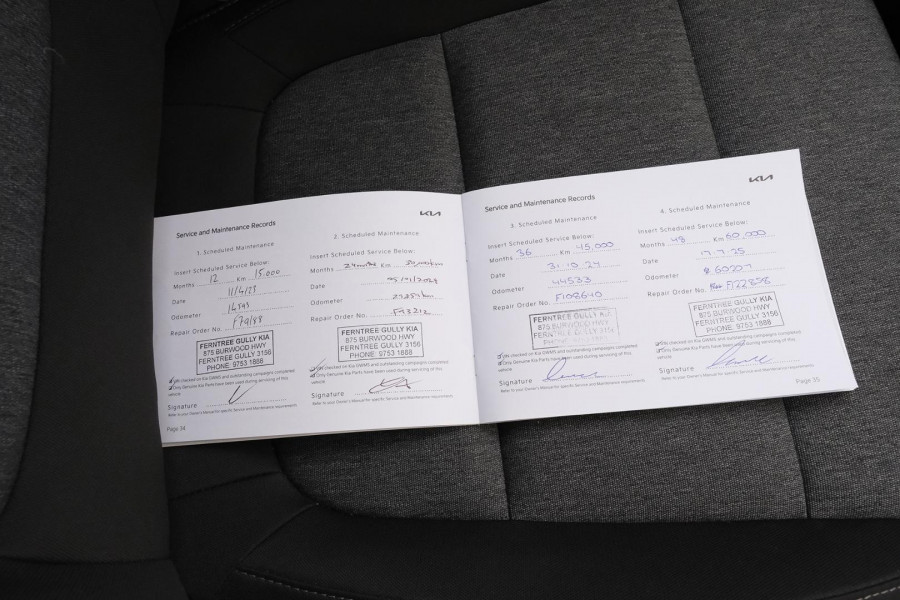 KIA
Service and Maintenance Records
1. Scheduled Maintenance
Insert Scheduled Service Below:
Months 12 Km 15,000
Date 11/4/23
Odometer
Repair Order No.
FERNTREE GULLY KIA
875 BURWOOD HWY
FERNTREE GULLY 3156
PHONE: 9753 1888
VIN checked on Kia GWMS and outstanding campaigns completed
Only Genuine Kia Parts have been used during servicing of this
vehicle.
Signature
Refer to your Owner's Manual for specific Service and Maintenance requirements
Page 34
2. Scheduled Maintenance
Insert Scheduled Service Below:
Months 24 Km 30,000km
Date
Odometer
Repair Order No. F93212
FERNTREE GULLY KIA
875 BURWOOD HWY
FERNTREE GULLY 3156
PHONE: 9753 1888
VIN checked on Kia GWMS and outstanding campaigns completed
Only Genuine Kia Parts have been used during servicing of this
vehicle.
Signature
Refer to your Owner's Manual for specific Service and Maintenance requirements
KIA
Service and Maintenance Records
3. Scheduled Maintenance
Insert Scheduled Service Below:
Months 36 Km 45,000
Date 31.10.24
Odometer 44533
Repair Order No. F108640
FERNTREE GULLY KIA
875 BURWOOD HWY
FERNTREE GULLY 3156
PHONE: 9753 1888
VIN checked on Kia GWMS and outstanding campaigns completed
Only Genuine Kia Parts have been used during servicing of this
vehicle.
Signature
Refer to your Owner's Manual for specific Service and Maintenance requirements
4. Scheduled Maintenance
Insert Scheduled Service Below:
Months 48 Km 60,000
Date 17.7.25
Odometer 60207
Repair Order No. F122858
FERNTREE GULLY KIA
875 BURWOOD HWY
FERNTREE GULLY 3156
PHONE: 9753 1888
VIN checked on Kia GWMS and outstanding campaigns completed
Only Genuine Kia Parts have been used during servicing of this
vehicle.
Signature
Refer to your Owner's Manual for specific Service and Maintenance requirements
Page 35